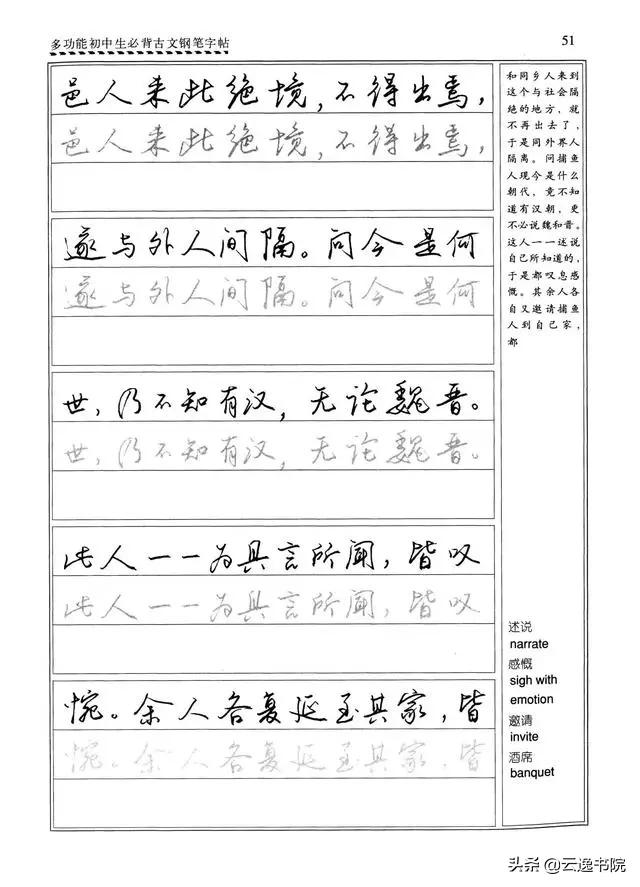 多功能初中生必背古文钢笔字帖
51
邑人来此绝境,不得出焉,
邑人来此绝境,不得出焉,
遂与外人间隔。问今是何
遂与外人间隔。问今是何
世,乃不知有汉,无论魏晋。
世,乃不知有汉,无论魏晋。
此人一一为具言所闻,皆叹
此人一一为具言所闻,皆叹
惋。余人各复延至其家,皆
惋。余人各复延至其家,皆
和同乡人来到
这个与社会隔
绝的地方,就
不再出去了,
于是同外界人
隔离。问捕鱼
人现今是什么
朝代,竟不知
道有汉朝,更
不必说魏和晋。
这人一一述说
自己所知道的,
于是都叹息感
慨。其余人各
自又邀请捕鱼
人到自己家,
都
述说
narrate
感慨
sigh with
emotion
邀请
invite
酒席
banquet
头条 @云逸书院